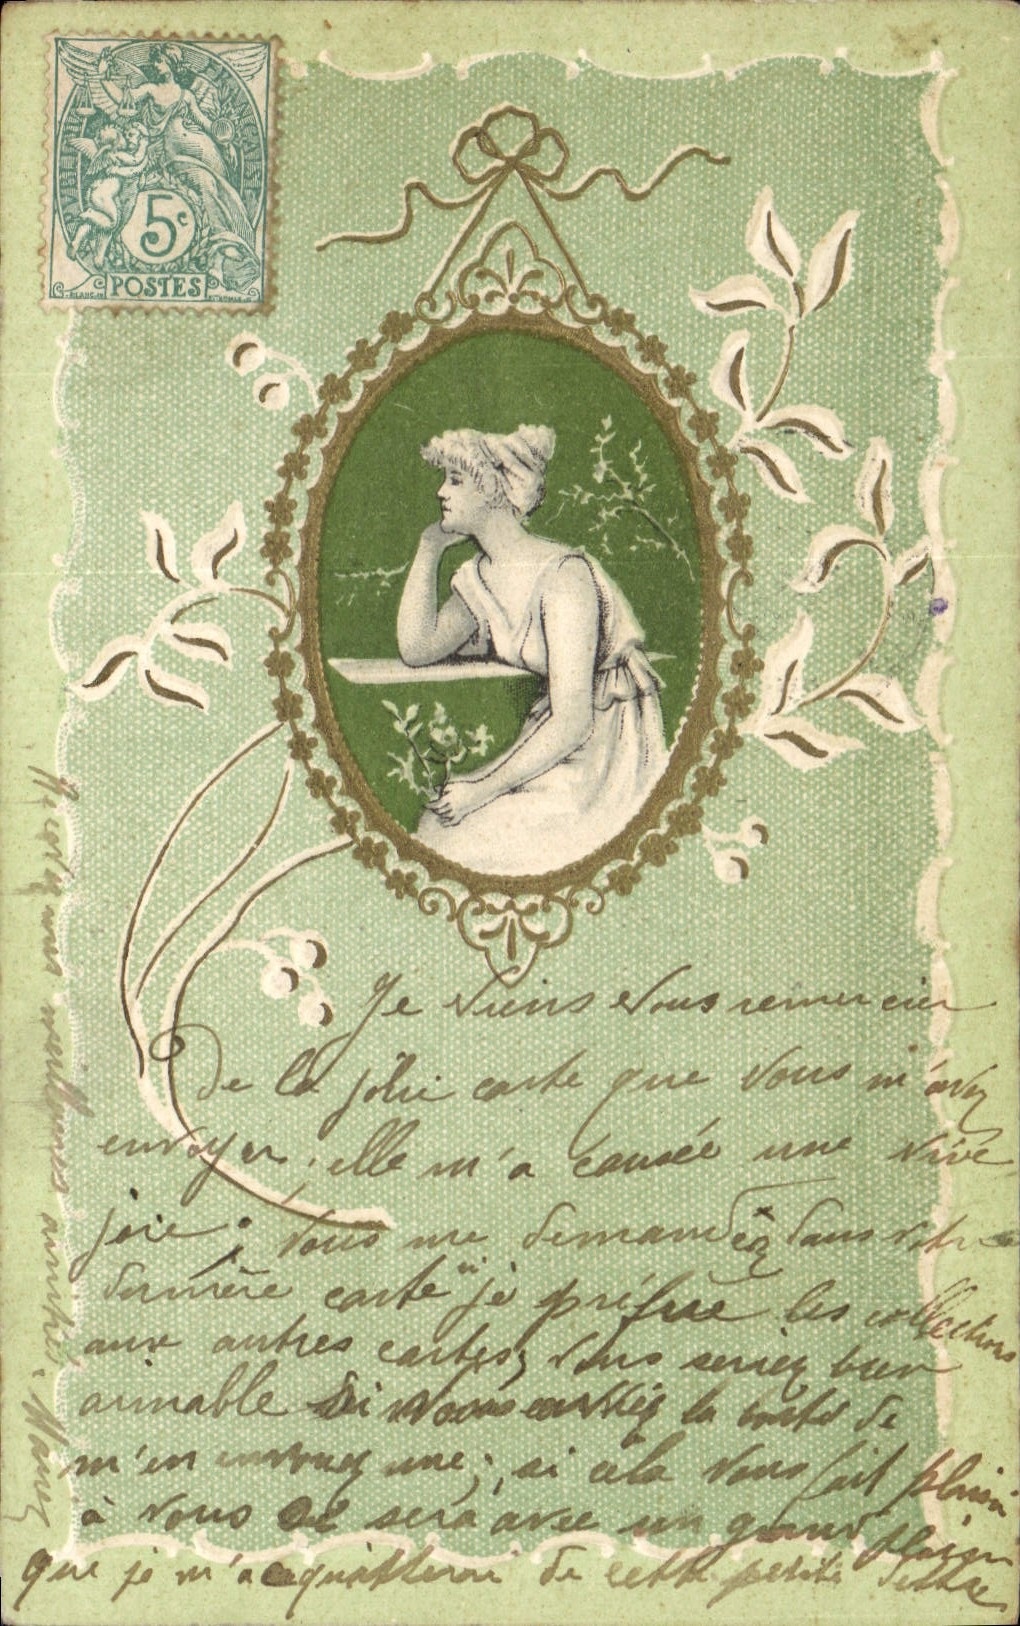 RÉPUBLIQUE FRANÇAISE
5c
POSTES
Je viens vous remercier
de la jolie carte que vous m'avez
envoyer, elle m'a causée une vive
joie; vous me demandez dans votre
dernière carte si je préfère les collections
aux autres cartes, vous seriez bien
aimable si vous aviez la bonté de
m'en envoyez une; si cela vous fait plaisir
à vous ce sera avec un grand plaisir
que je m'acquitterai de cette petite dette
Recevez mes meilleures amitiés.